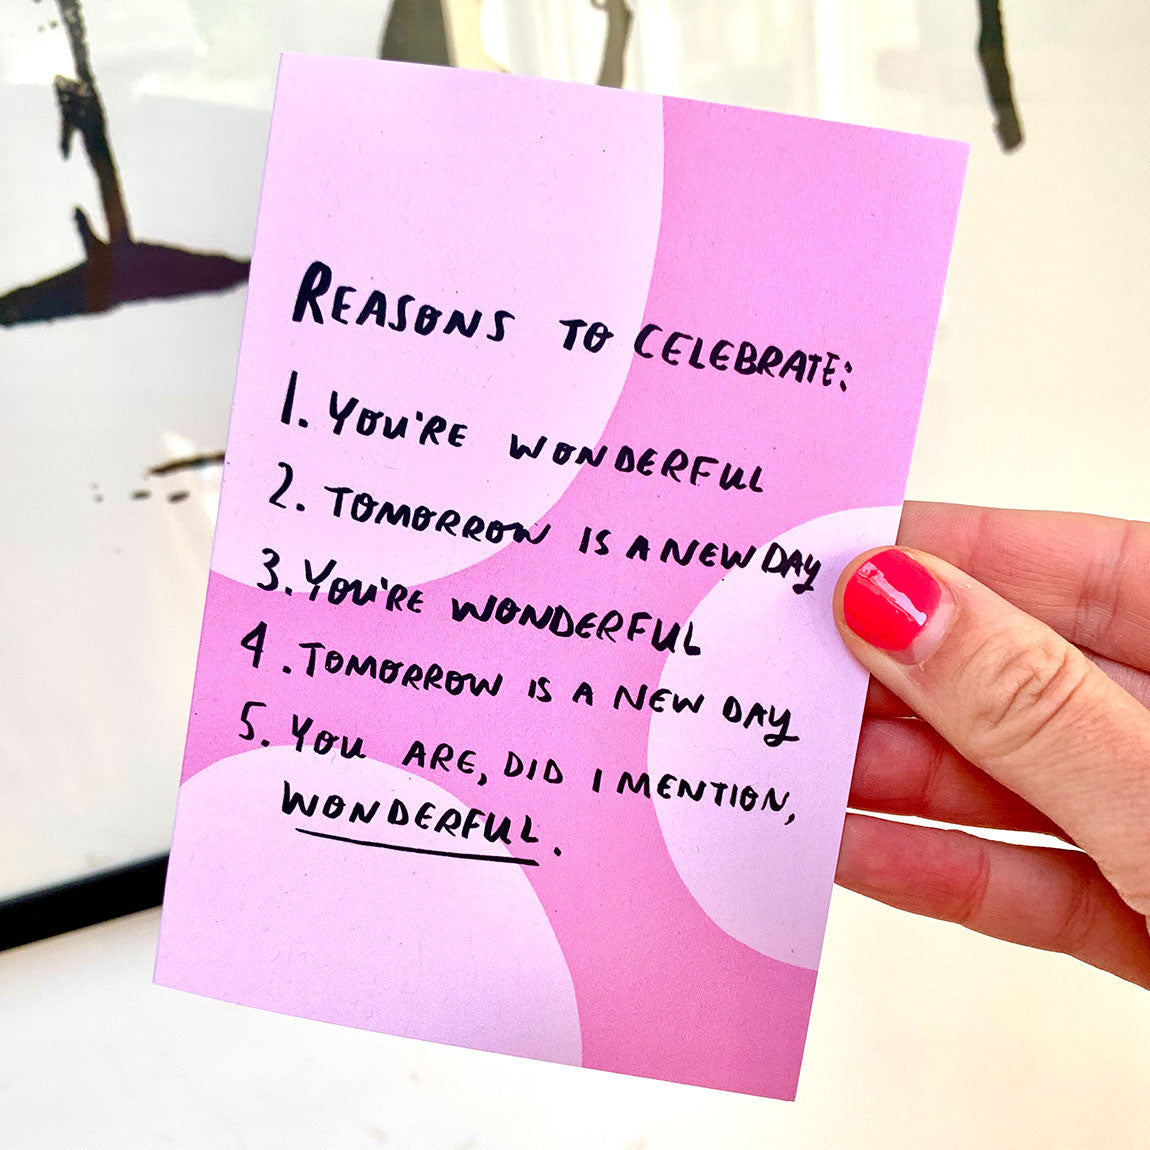 REASONS TO CELEBRATE:
1. YOU'RE WONDERFUL
2. TOMORROW IS A NEW DAY
3. YOU'RE WONDERFUL
4. TOMORROW IS A NEW DAY
5. YOU ARE, DID I MENTION,
WONDERFUL.